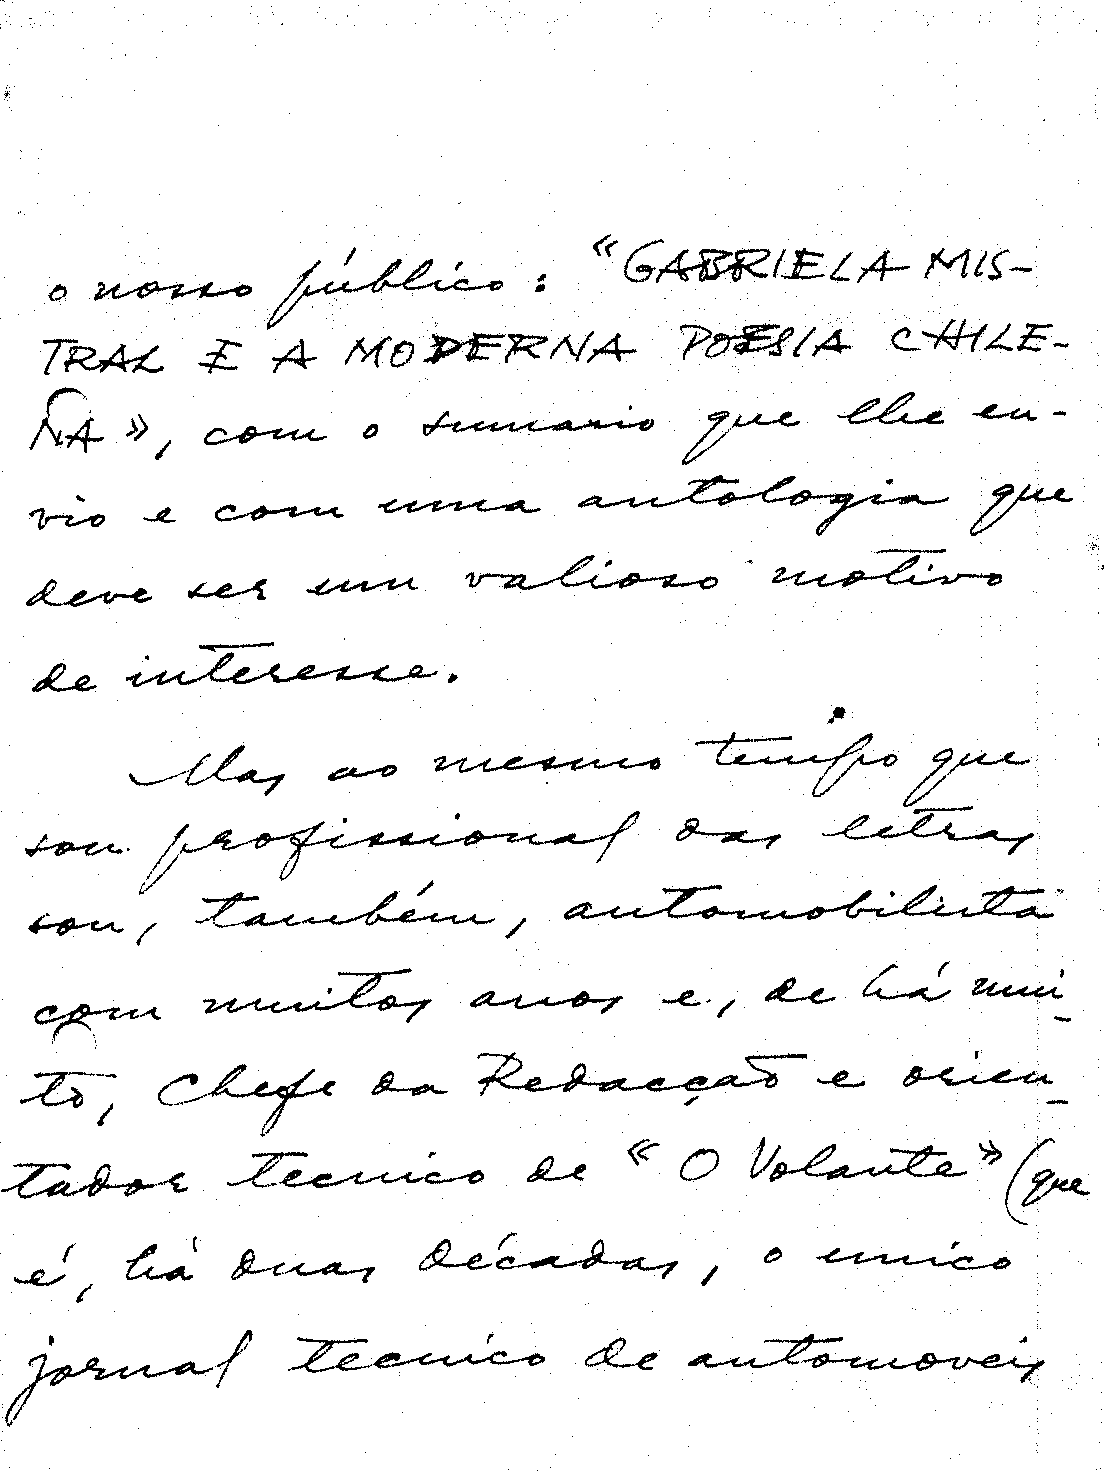 o nosso público: “GABRIELA MIS-
TRAL E A MODERNA POESIA CHILE-
ÑA”, com o sumario que lhe en-
vio e com uma antologia que
deve ser um valioso motivo
de interesse.
Mas ao mesmo tempo que
sou profissional das letras
sou, também, automobilista
com muitos anos e, de há mui-
to, Chefe da Redacção e orien-
tador tecnico de “O Volante” (que
é, há duas décadas, o unico
jornal tecnico de automoveis